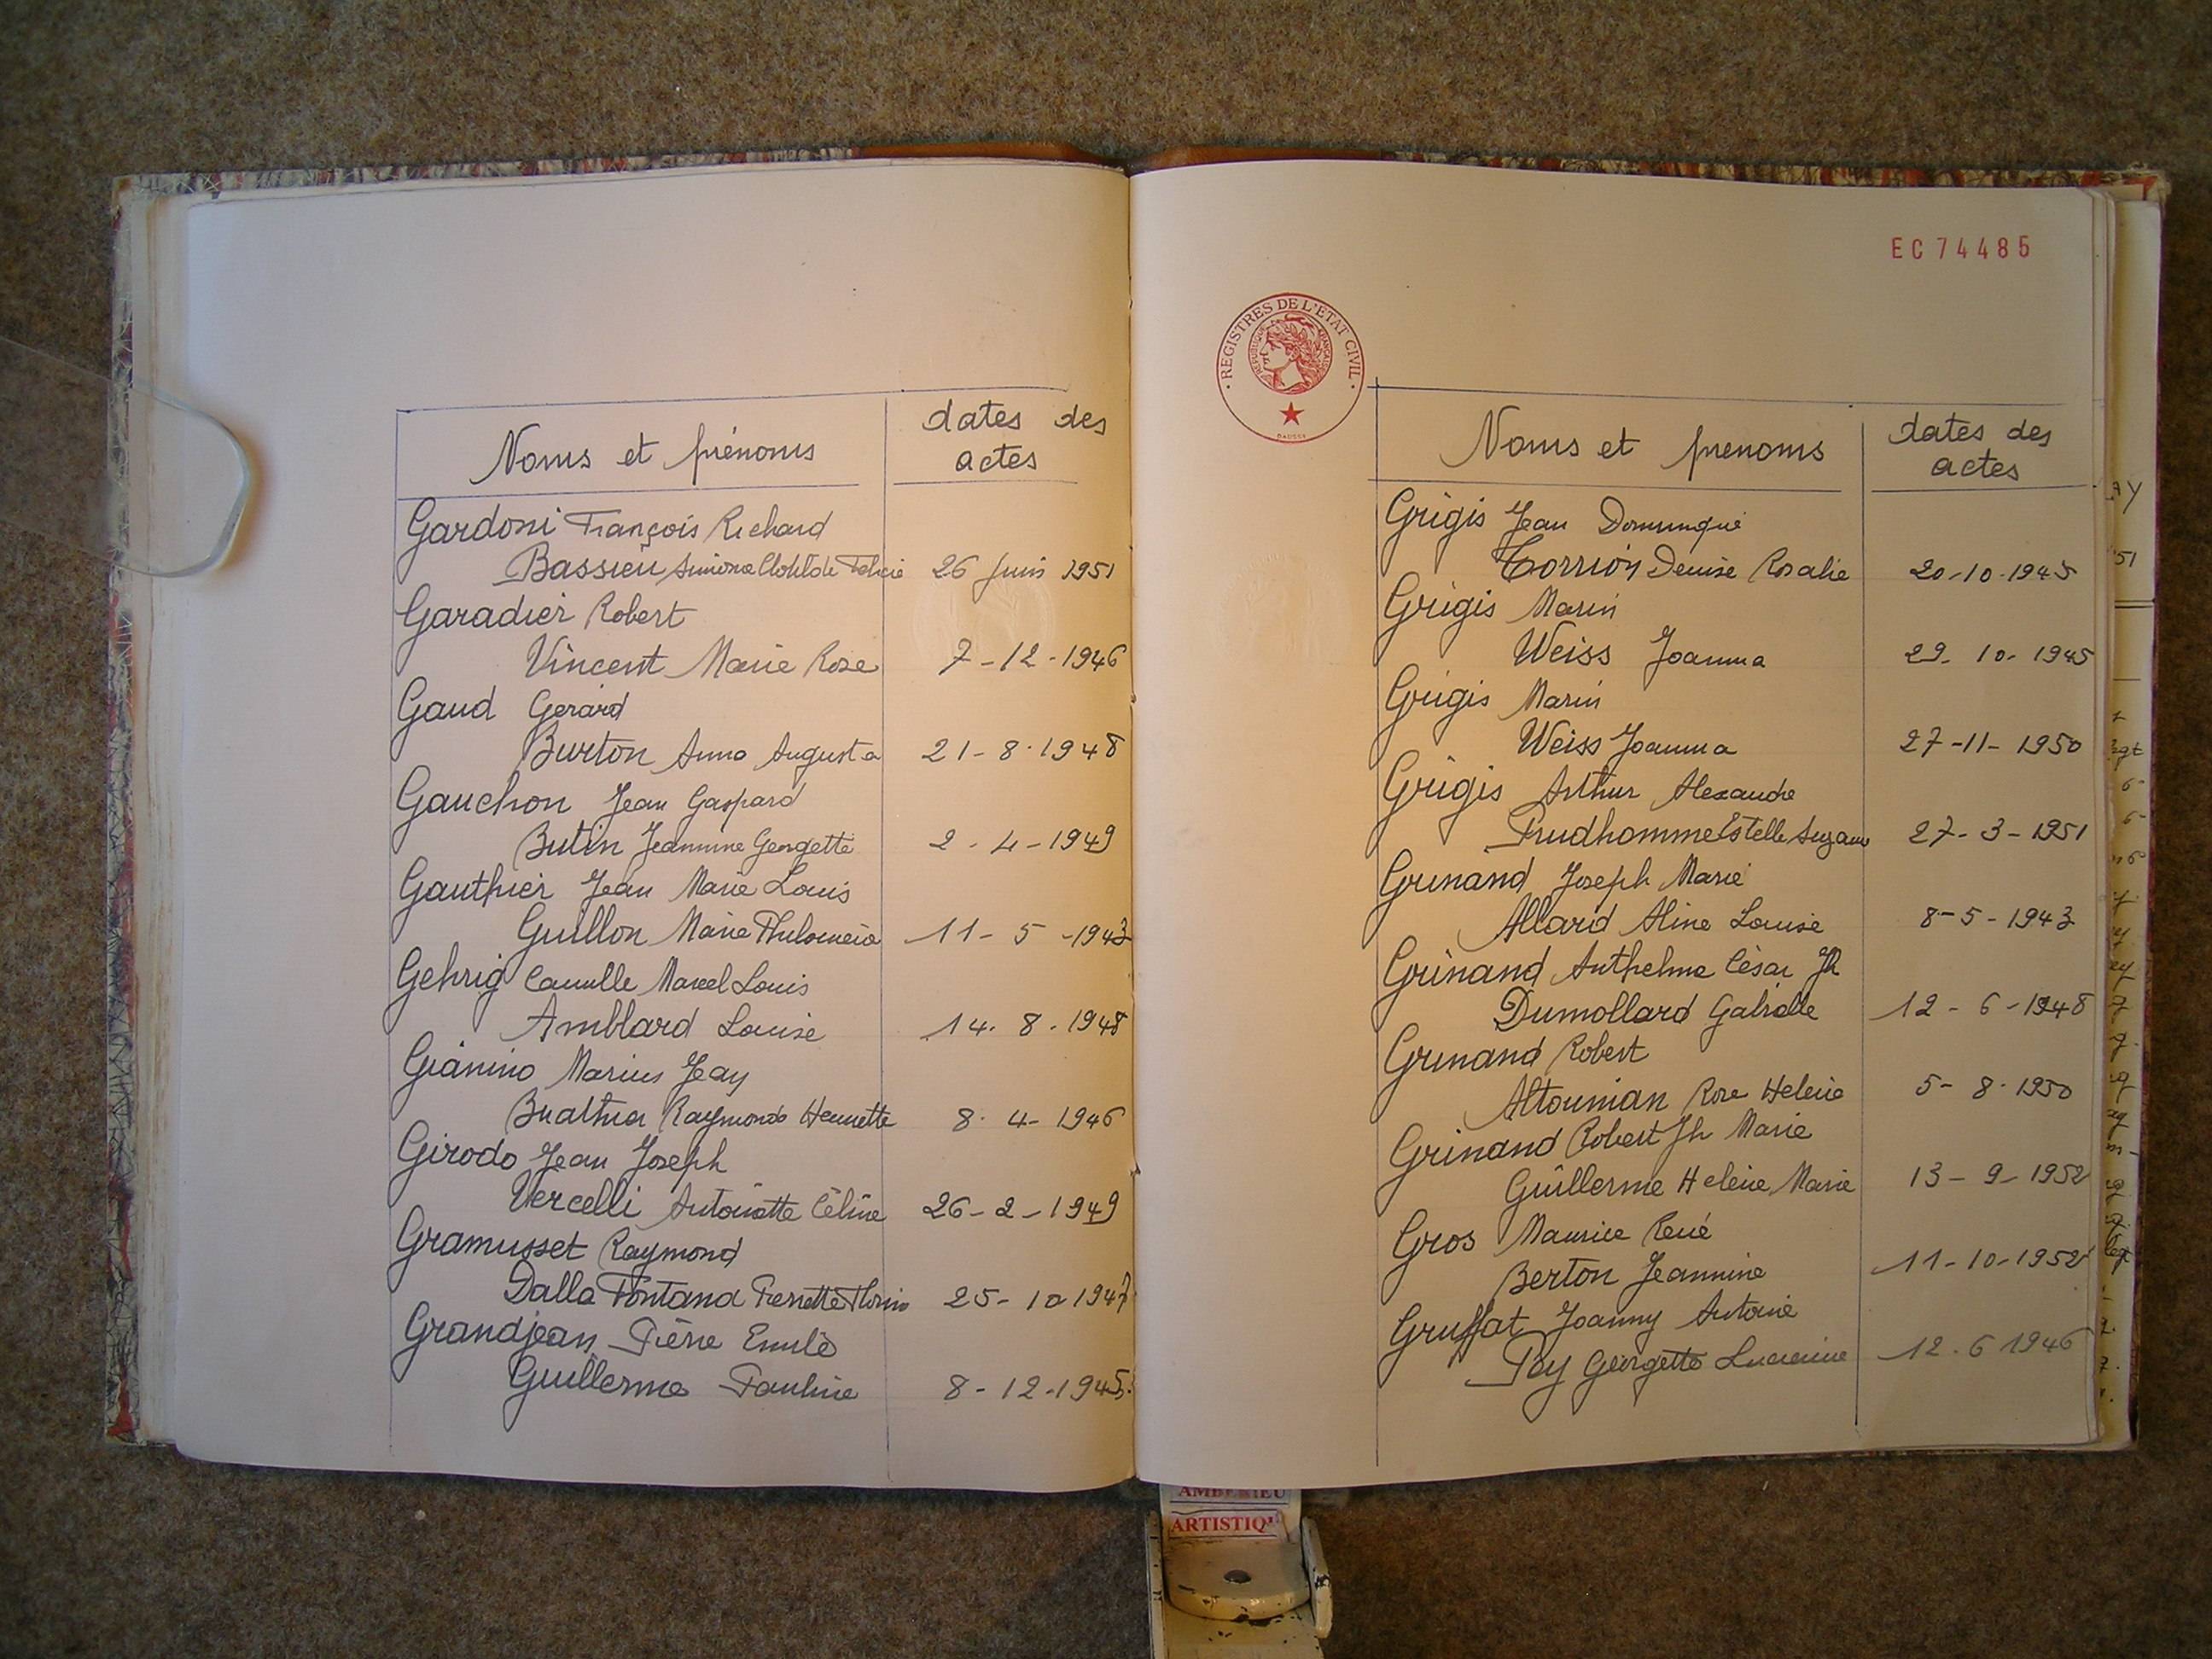 Noms et prénoms
dates des
actes
Gardoni François Richard
Bassieu Simone Clotilde Felicie 26 Juin 1951
Garadier Robert
Vincent Marie Rose 7-12-1946
Gaud Gerard
Burton Anna Augusta 21-8-1948
Gauchon Jean Gaspard
Butin Jeannine Georgette 2-4-1949
Gauthier Jean Marie Louis
Guillon Marie Philomena 11-5-1943
Gehrig Camille Marcel Louis
Amblard Louise 14.8.1948
Gianino Marius Jean
Raymonde Henriette 8-4-1946
Girodo Jean Joseph
Vercelli Antoinette Céline 26-2-1949
Gramusset Raymond
Dalla Fontana Pierrette 25-10 1947
Grandjean Pierre Emile
Guillerme Pauline 8-12-1945
EC 74485
REGISTRES DE L'ETAT CIVIL
REPUBLIQUE FRANÇAISE
Noms et prenoms
dates des
actes
Grigis Jean Dominique
Torrion Denise Rosalie 20-10-1945
Grigis Marin
Weiss Joanna 29-10-1945
Grigis Marin
Weiss Joanna 27-11-1950
Grigis Arthur Alexandre
Prudhomme Estelle Suzanne 27-3-1951
Grinand Joseph Marie
Allard Aline Louise 8-5-1943
Grinand Anthelme César Jh
Dumollard Gabrielle 12-6-1948
Grinand Robert
Altounian Rose Helene 5-8-1950
Grinand Robert Jh Marie
Guillerme Helene Marie 13-9-1952
Gros Maurice René
Berton Jeannine 11-10-1952
Gruffat Joanny Antoine
Pey Georgette Lucienne 12.6 1946
AMBERIEU
ARTISTIQU